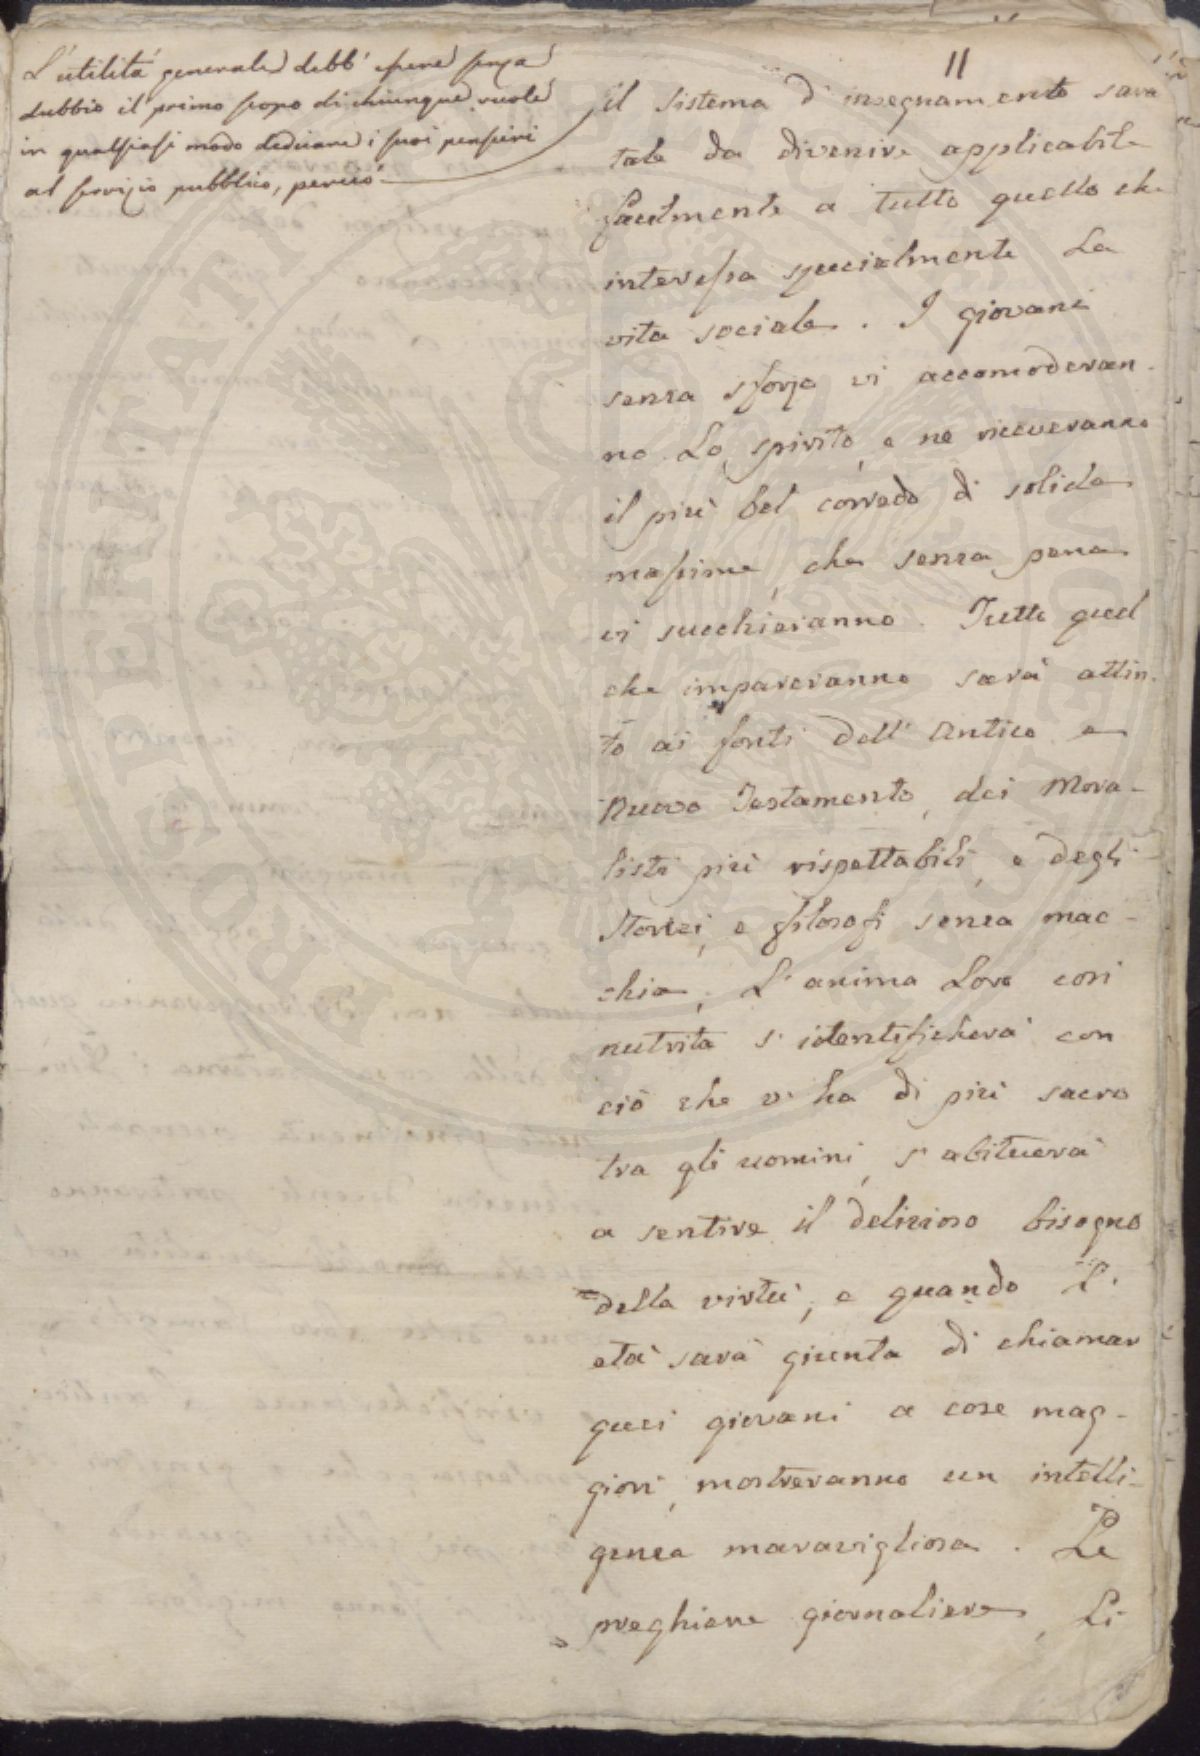 11
L'utilità generale debb' essere senza
dubbio il primo scopo di chiunque vuole
in qualsiasi modo dedicare i suoi pensieri
al servizio pubblico, perciò
il sistema d' insegnamento sarà
tale da divenire applicabile
facilmente a tutto quello che
interessa specialmente la
vita sociale. I giovani
senza sforzo vi accomoderan-
no lo spirito, e ne riceveranno
il più bel corredo di solide
massime, che senza pena
vi succhieranno. Tutto quel
che impareranno sarà attin-
to ai fonti dell' antico e
nuovo Testamento, dei Mora-
listi più rispettabili, e degli
Storici, e filosofi senza mac-
chia. L' anima loro così
nutrita s' identificherà con
ciò che v' ha di più sacro
tra gli uomini, s' abituerà
a sentire il delizioso bisogno
della virtù, e quando l'
età sarà giunta di chiamar
quei giovani a cose mag-
giori, mostreranno un intelli-
genza maravigliosa. Le
preghiere giornaliere, li